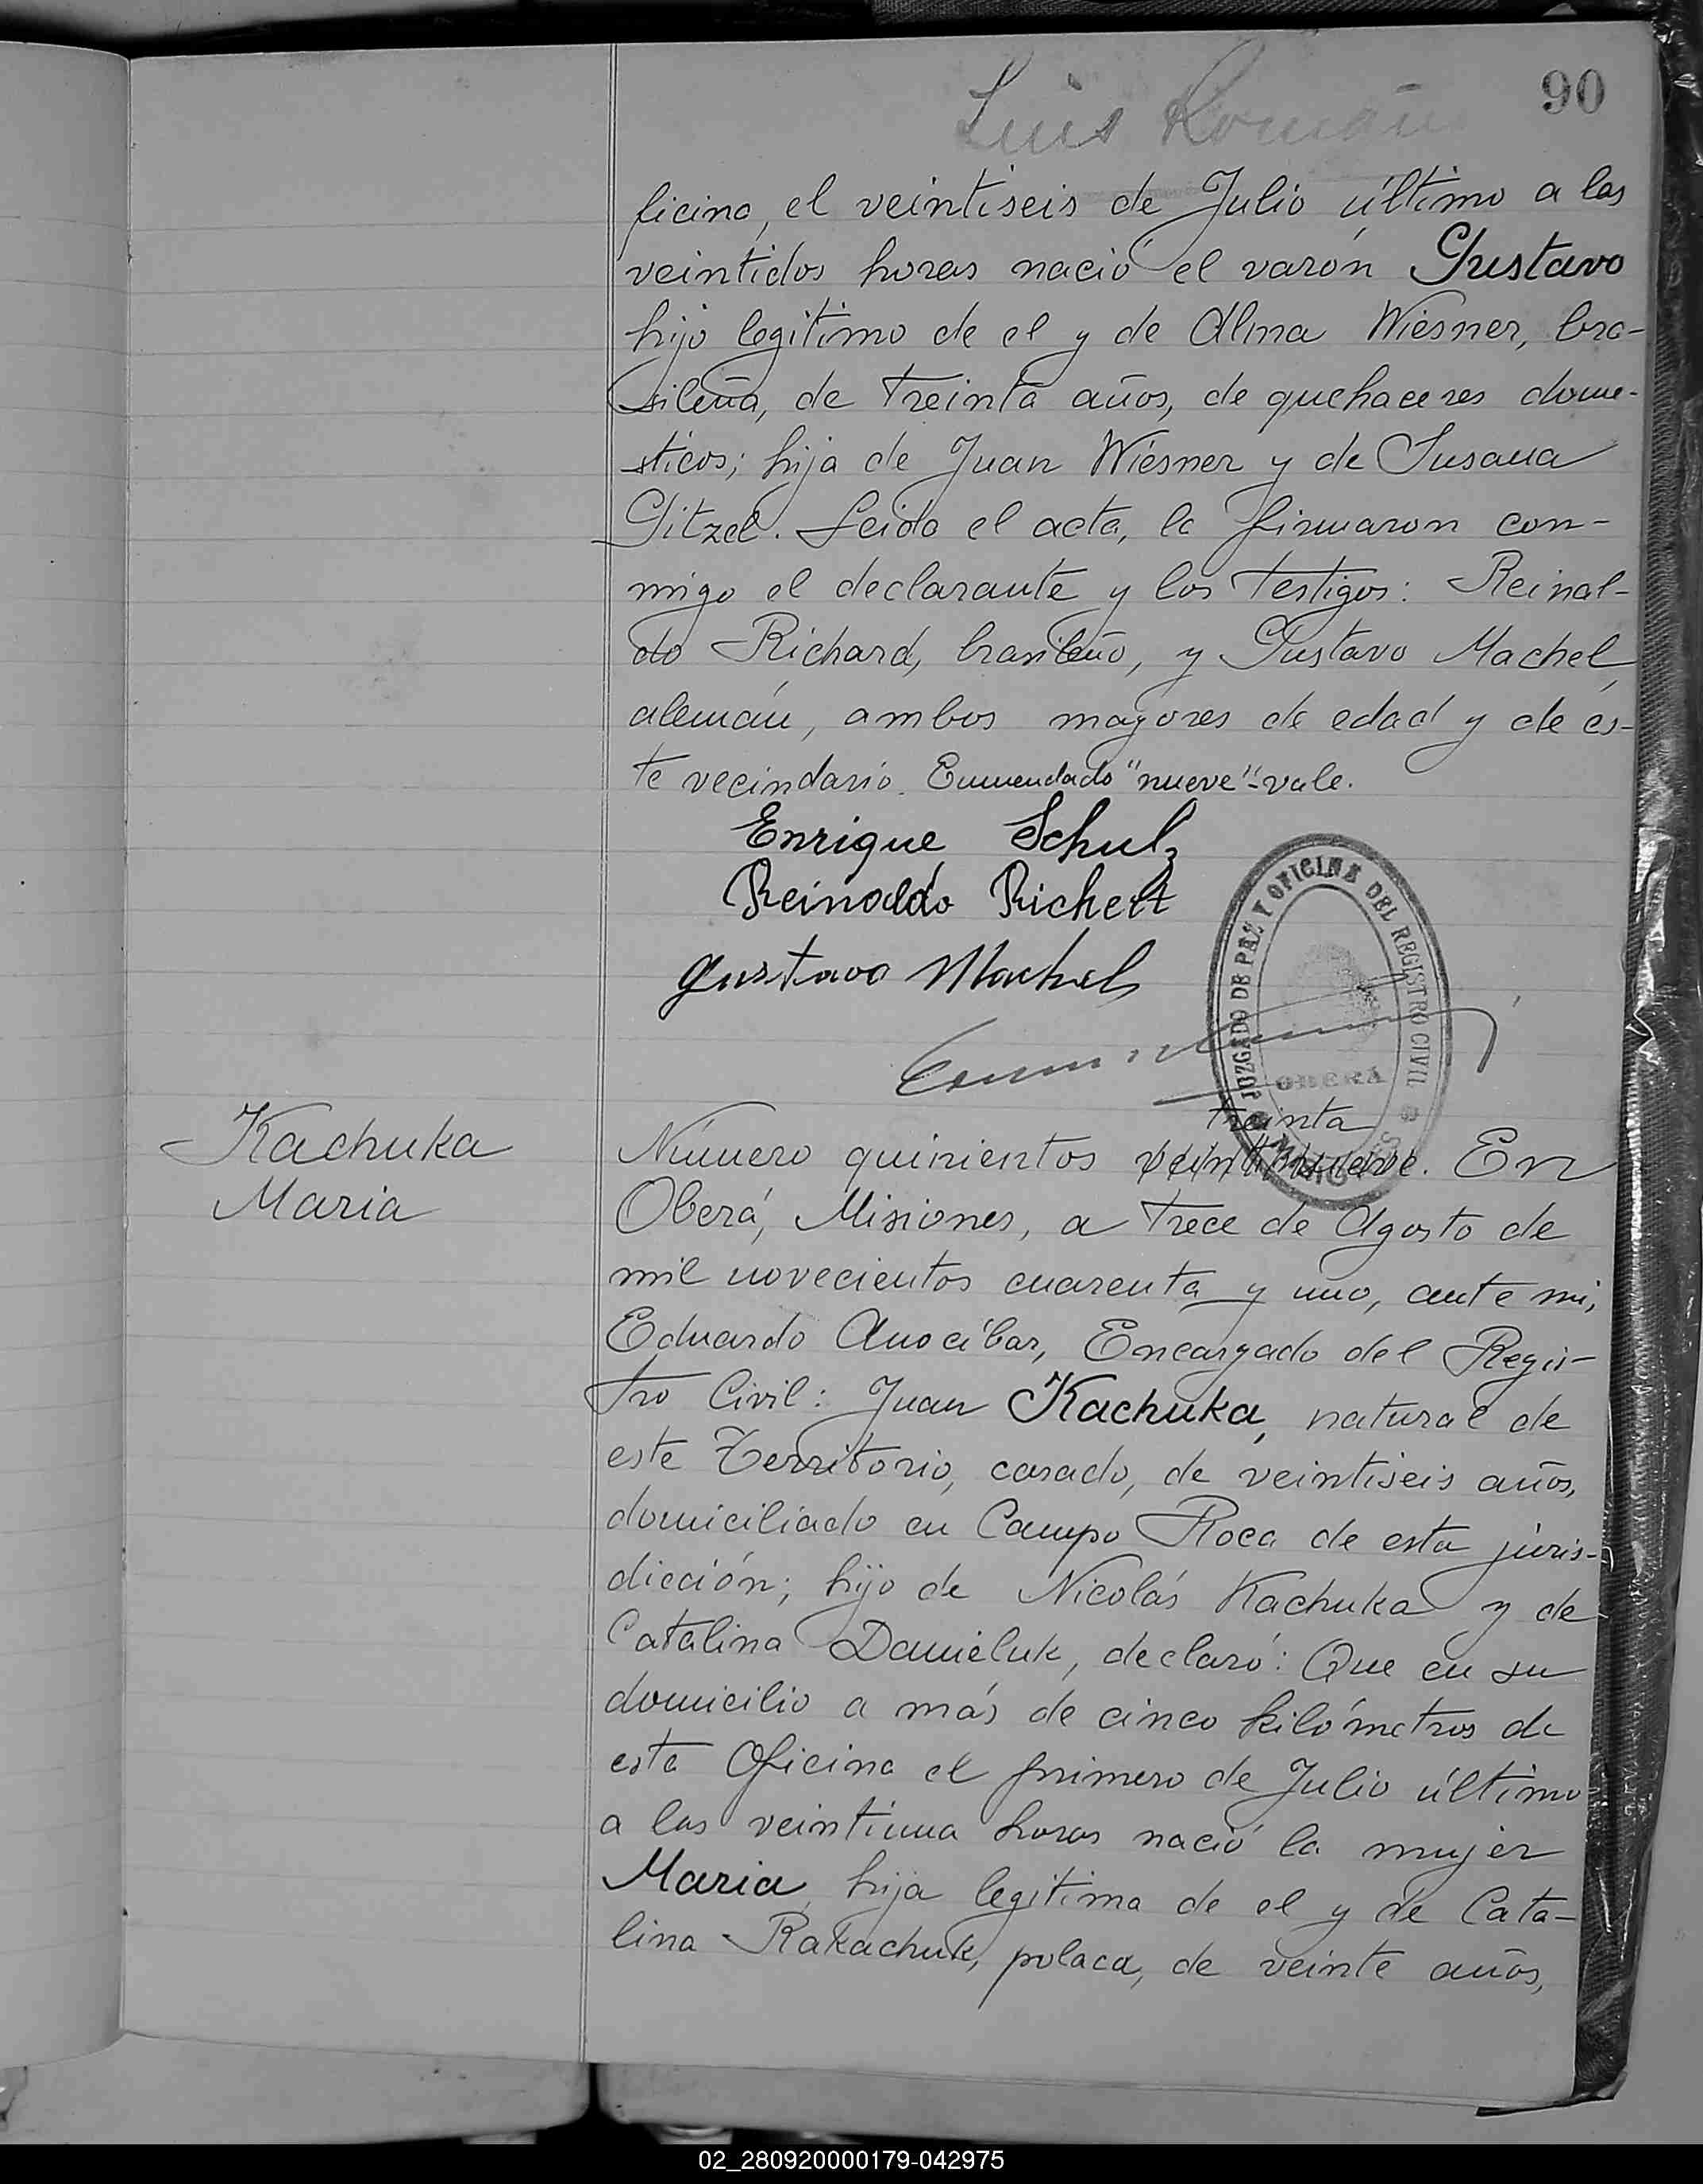 Luis Román
90
ficina, el veintiseis de Julio último a las
veintidos horas nació el varón Gustavo
hijo legitimo de el y de Alma Wiesner, bra-
sileña, de treinta años, de quehaceres dome-
sticos; hija de Juan Wiesner y de Susana
Gitzel. Leida el acta, la firmaron con-
migo el declarante y los testigos: Reinal-
do Richard, brasileño, y Gustavo Machel,
alemán, ambos mayores de edad y de és-
te vecindario. Enmendado "nueve"-vale.
Enrique Schulz
Reinoldo Richert
Gustavo Machel
JUZGADO DE PAZ Y OFICINA DEL REGISTRO CIVIL
OBERÁ
MISIONES
Kachuka
Maria
treinta
Número quinientos veintinueve. En
Oberá, Misiones, a trece de Agosto de
mil novecientos cuarenta y uno, ante mi,
Eduardo Anocíbar, Encargado del Regis-
tro Civil: Juan Kachuka, natural de
este Territorio, casado, de veintiseis años,
domiciliado en Campo Roca de esta juris-
dicción; hijo de Nicolás Kachuka y de
Catalina Danieluk, declaró: Que en su
domicilio a más de cinco kilómetros de
esta Oficina el primero de Julio último
a las veintiuna horas nació la mujer
Maria, hija legitima de el y de Cata-
lina Rakachuk, polaca, de veinte años,
02_280920000179-042975